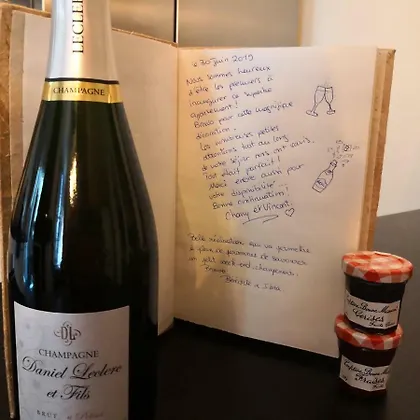 LECLER
CHAMPAGNE
DL
CHAMPAGNE
Daniel Leclerc
et Fils
BRUT
le 30 juin 2019
Nous sommes heureux
d'être les premiers à
inaugurer ce superbe
appartement !
Bravo pour cette magnifique
décoration.
Les nombreuses petites
attentions tout au long
de notre séjour nous ont ravis.
Tout était parfait !
Merci encore aussi pour
votre disponibilité
Bonne continuation !
Chany et Vincent.
Belle réalisation qui va permettre
à plein de personnes de savourer
un petit week-end champenois.
Bravo
Bonne Maman
Cerises
Bonne Maman
Fraises